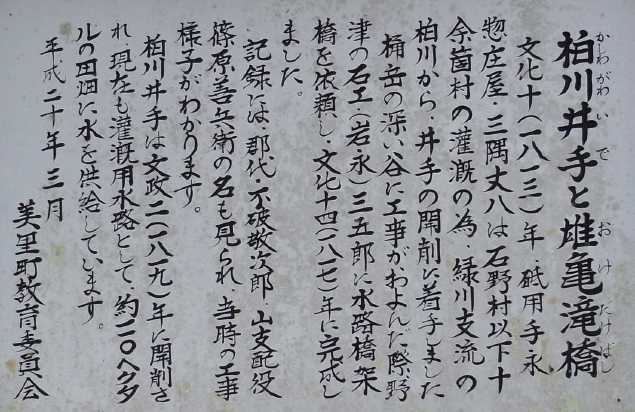 柏川井手と雄亀滝橋
かわがわいで おけだけばし
文化十(一八一三)年、砥用手永
惣庄屋・三隅丈八は石野村以下十
余箇村の灌漑の為、緑川支流の
柏川から、井手の開削に着手しました
桶岳の深い谷に工事がおよんだ際野
津の石工(岩永)三五郎に水路橋架
橋を依頼し、文化十四(一八一七)年に完成し
ました。
記録には、郡代・不破敬次郎、山支配役
篠原善兵衛の名も見られ、当時の工事
様子がわかります。
柏川井手は文政二(一八一九)年に開削さ
れ、現在も灌漑用水路として、約一二〇ヘクタ
ルの田畑に水を供給しています。
平成二十年三月
美里町教育委員会